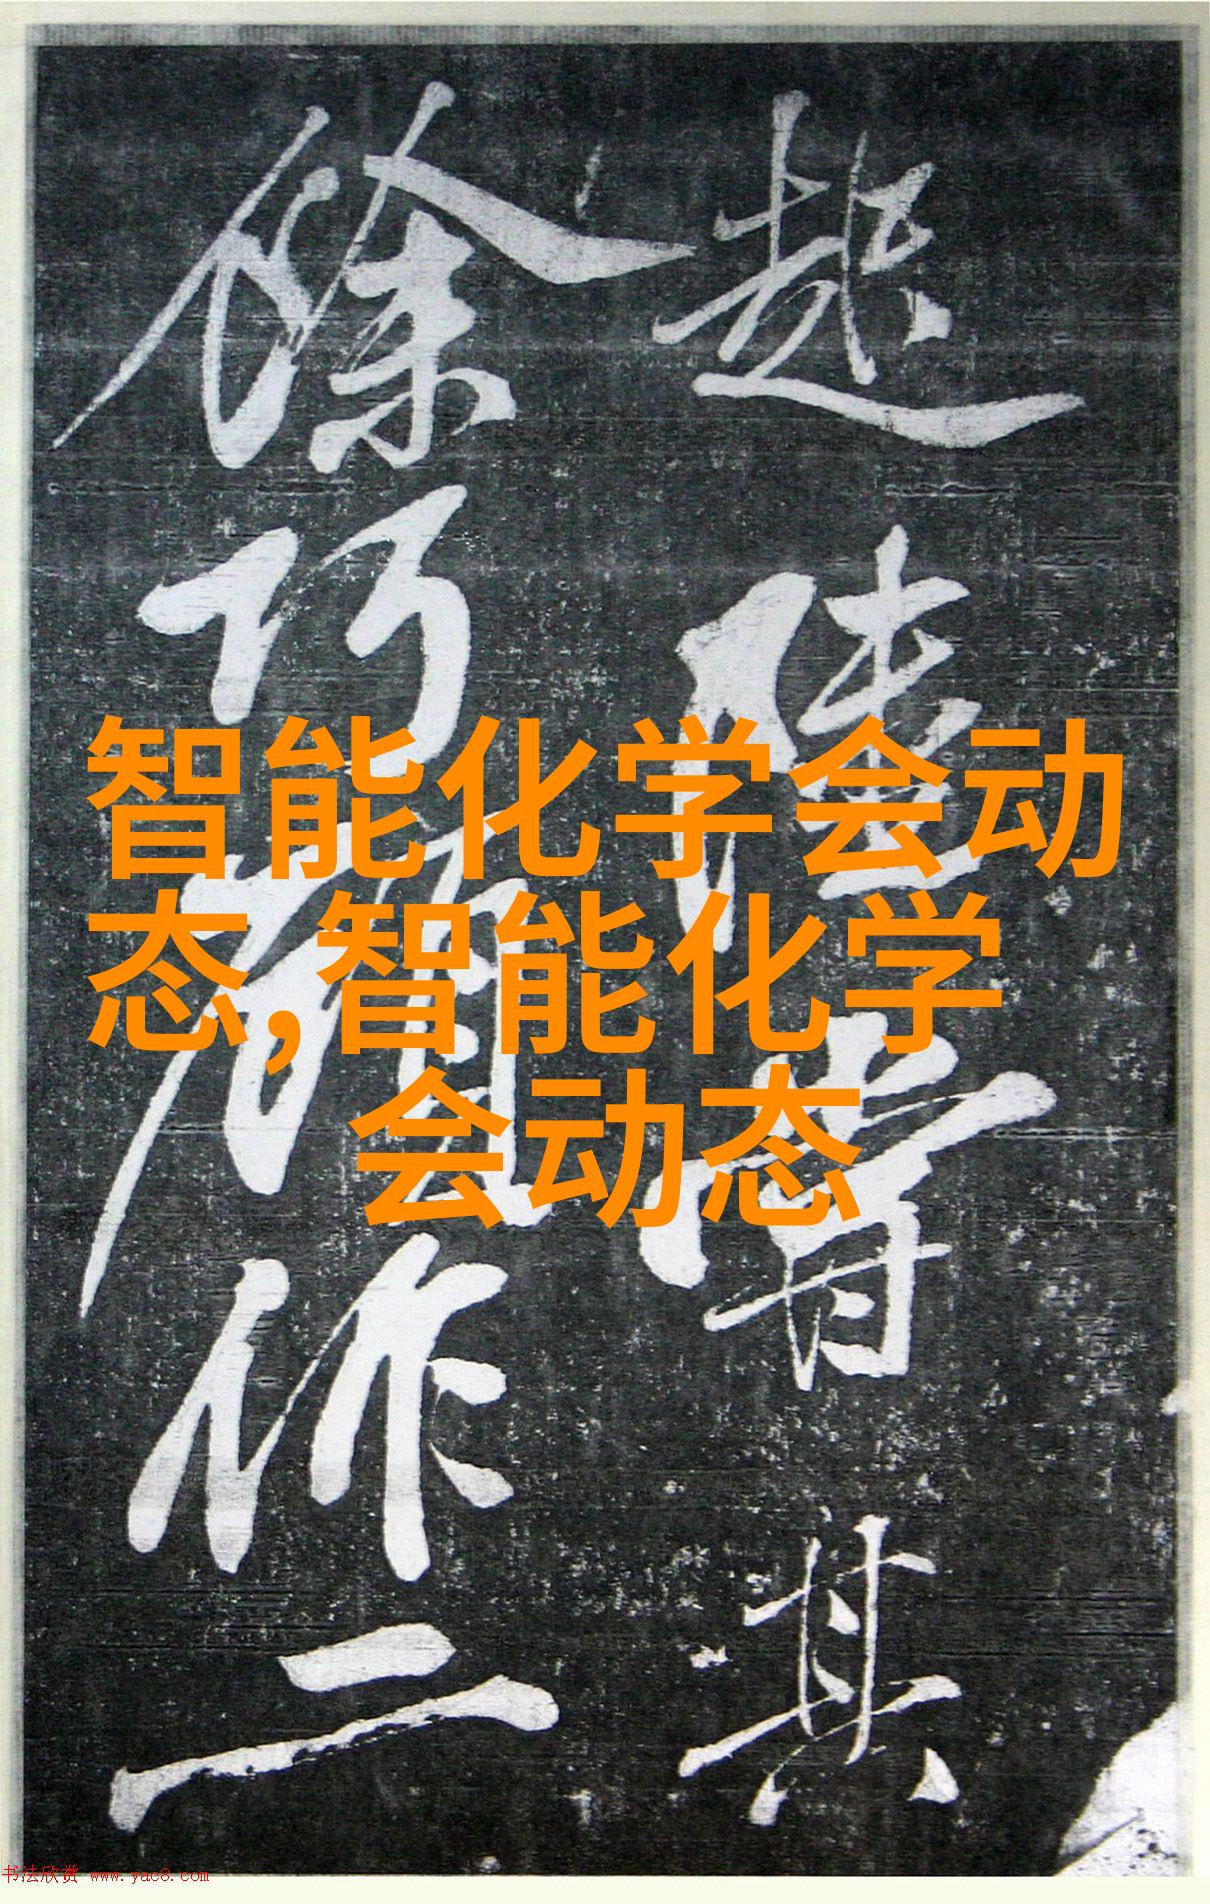 其
徐巧
作二
智能化学会动
态,智能化学
会动态
书法欣赏 www.yac8.com